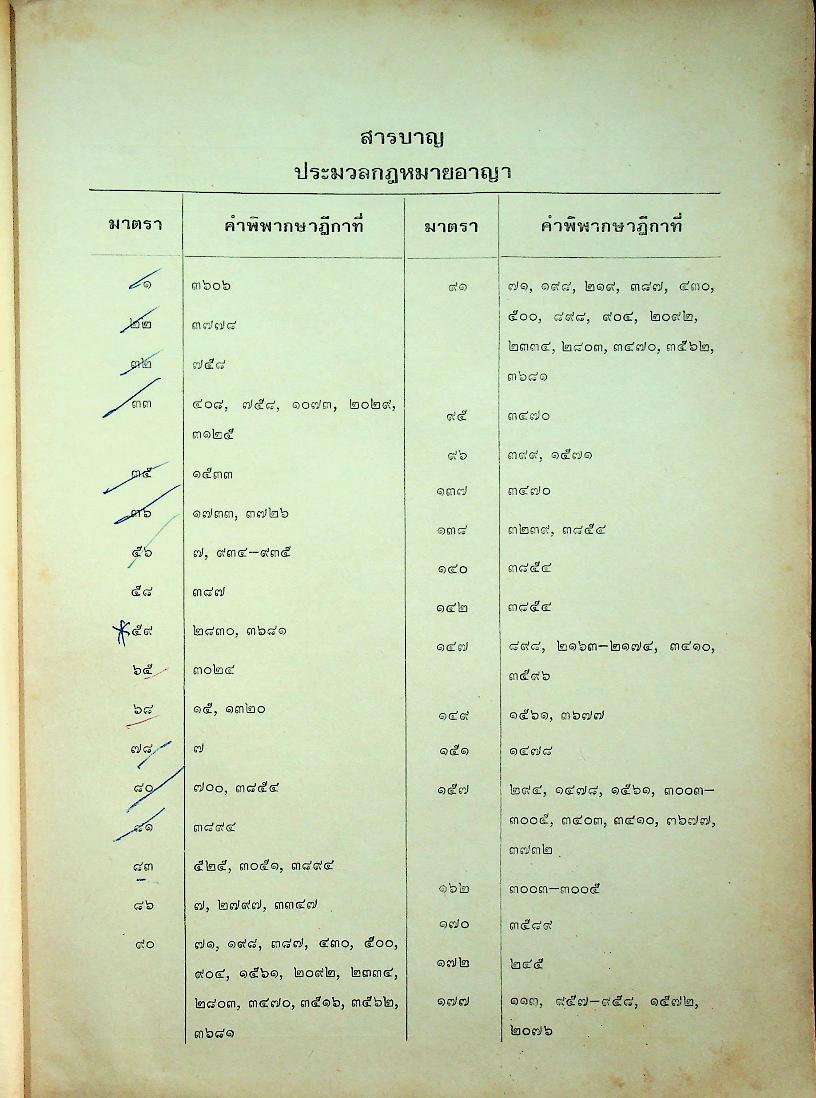 สารบาญ
ประมวลกฎหมายอาญา
มาตรา คำพิพากษาฎีกาที่
๑ ๓๖๐๖
๒๒ ๓๗๗๘
๓๒ ๗๕๘
๓๓ ๔๐๘, ๗๕๘, ๑๐๗๓, ๒๐๒๙,
๓๑๒๕
๓๕ ๑๕๓๓
๓๖ ๑๗๓๓, ๓๗๒๖
๕๖ ๗, ๙๓๔–๙๓๕
๕๘ ๓๘๗
๕๙ ๒๘๓๐, ๓๖๘๑
๖๕ ๓๐๒๔
๖๘ ๑๕, ๑๓๒๐
๗๘ ๗
๘๐ ๗๐๐, ๓๘๕๔
๘๑ ๓๘๙๔
๘๓ ๕๒๕, ๓๐๕๑, ๓๘๙๔
๘๖ ๗, ๒๗๙๗, ๓๓๔๗
๙๐ ๗๑, ๑๙๘, ๓๘๗, ๔๓๐, ๕๐๐,
๙๐๔, ๑๕๖๑, ๒๐๙๒, ๒๓๓๔,
๒๘๐๓, ๓๔๗๐, ๓๕๑๖, ๓๕๖๒,
๓๖๘๑
มาตรา คำพิพากษาฎีกาที่
๙๑ ๗๑, ๑๙๘, ๒๑๙, ๓๘๗, ๔๓๐,
๕๐๐, ๘๙๘, ๙๐๔, ๒๐๙๒,
๒๓๓๔, ๒๘๐๓, ๓๔๗๐, ๓๕๖๒,
๓๖๘๑
๙๕ ๓๔๗๐
๙๖ ๓๙๙, ๑๕๗๑
๑๓๗ ๓๔๗๐
๑๓๘ ๓๒๓๙, ๓๘๕๔
๑๔๐ ๓๘๕๔
๑๔๒ ๓๘๕๔
๑๔๗ ๘๙๘, ๒๑๖๓–๒๑๗๔, ๓๔๑๐,
๓๕๙๖
๑๔๙ ๑๕๖๑, ๓๖๗๗
๑๕๑ ๑๔๗๘
๑๕๗ ๒๙๔, ๑๔๗๘, ๑๕๖๑, ๓๐๐๓–
๓๐๐๕, ๓๔๐๓, ๓๔๑๐, ๓๖๗๗,
๓๗๓๒
๑๖๒ ๓๐๐๓–๓๐๐๕
๑๗๐ ๓๕๘๙
๑๗๒ ๒๔๕
๑๗๗ ๑๑๓, ๙๕๗–๙๕๘, ๑๕๗๒,
๒๐๗๖